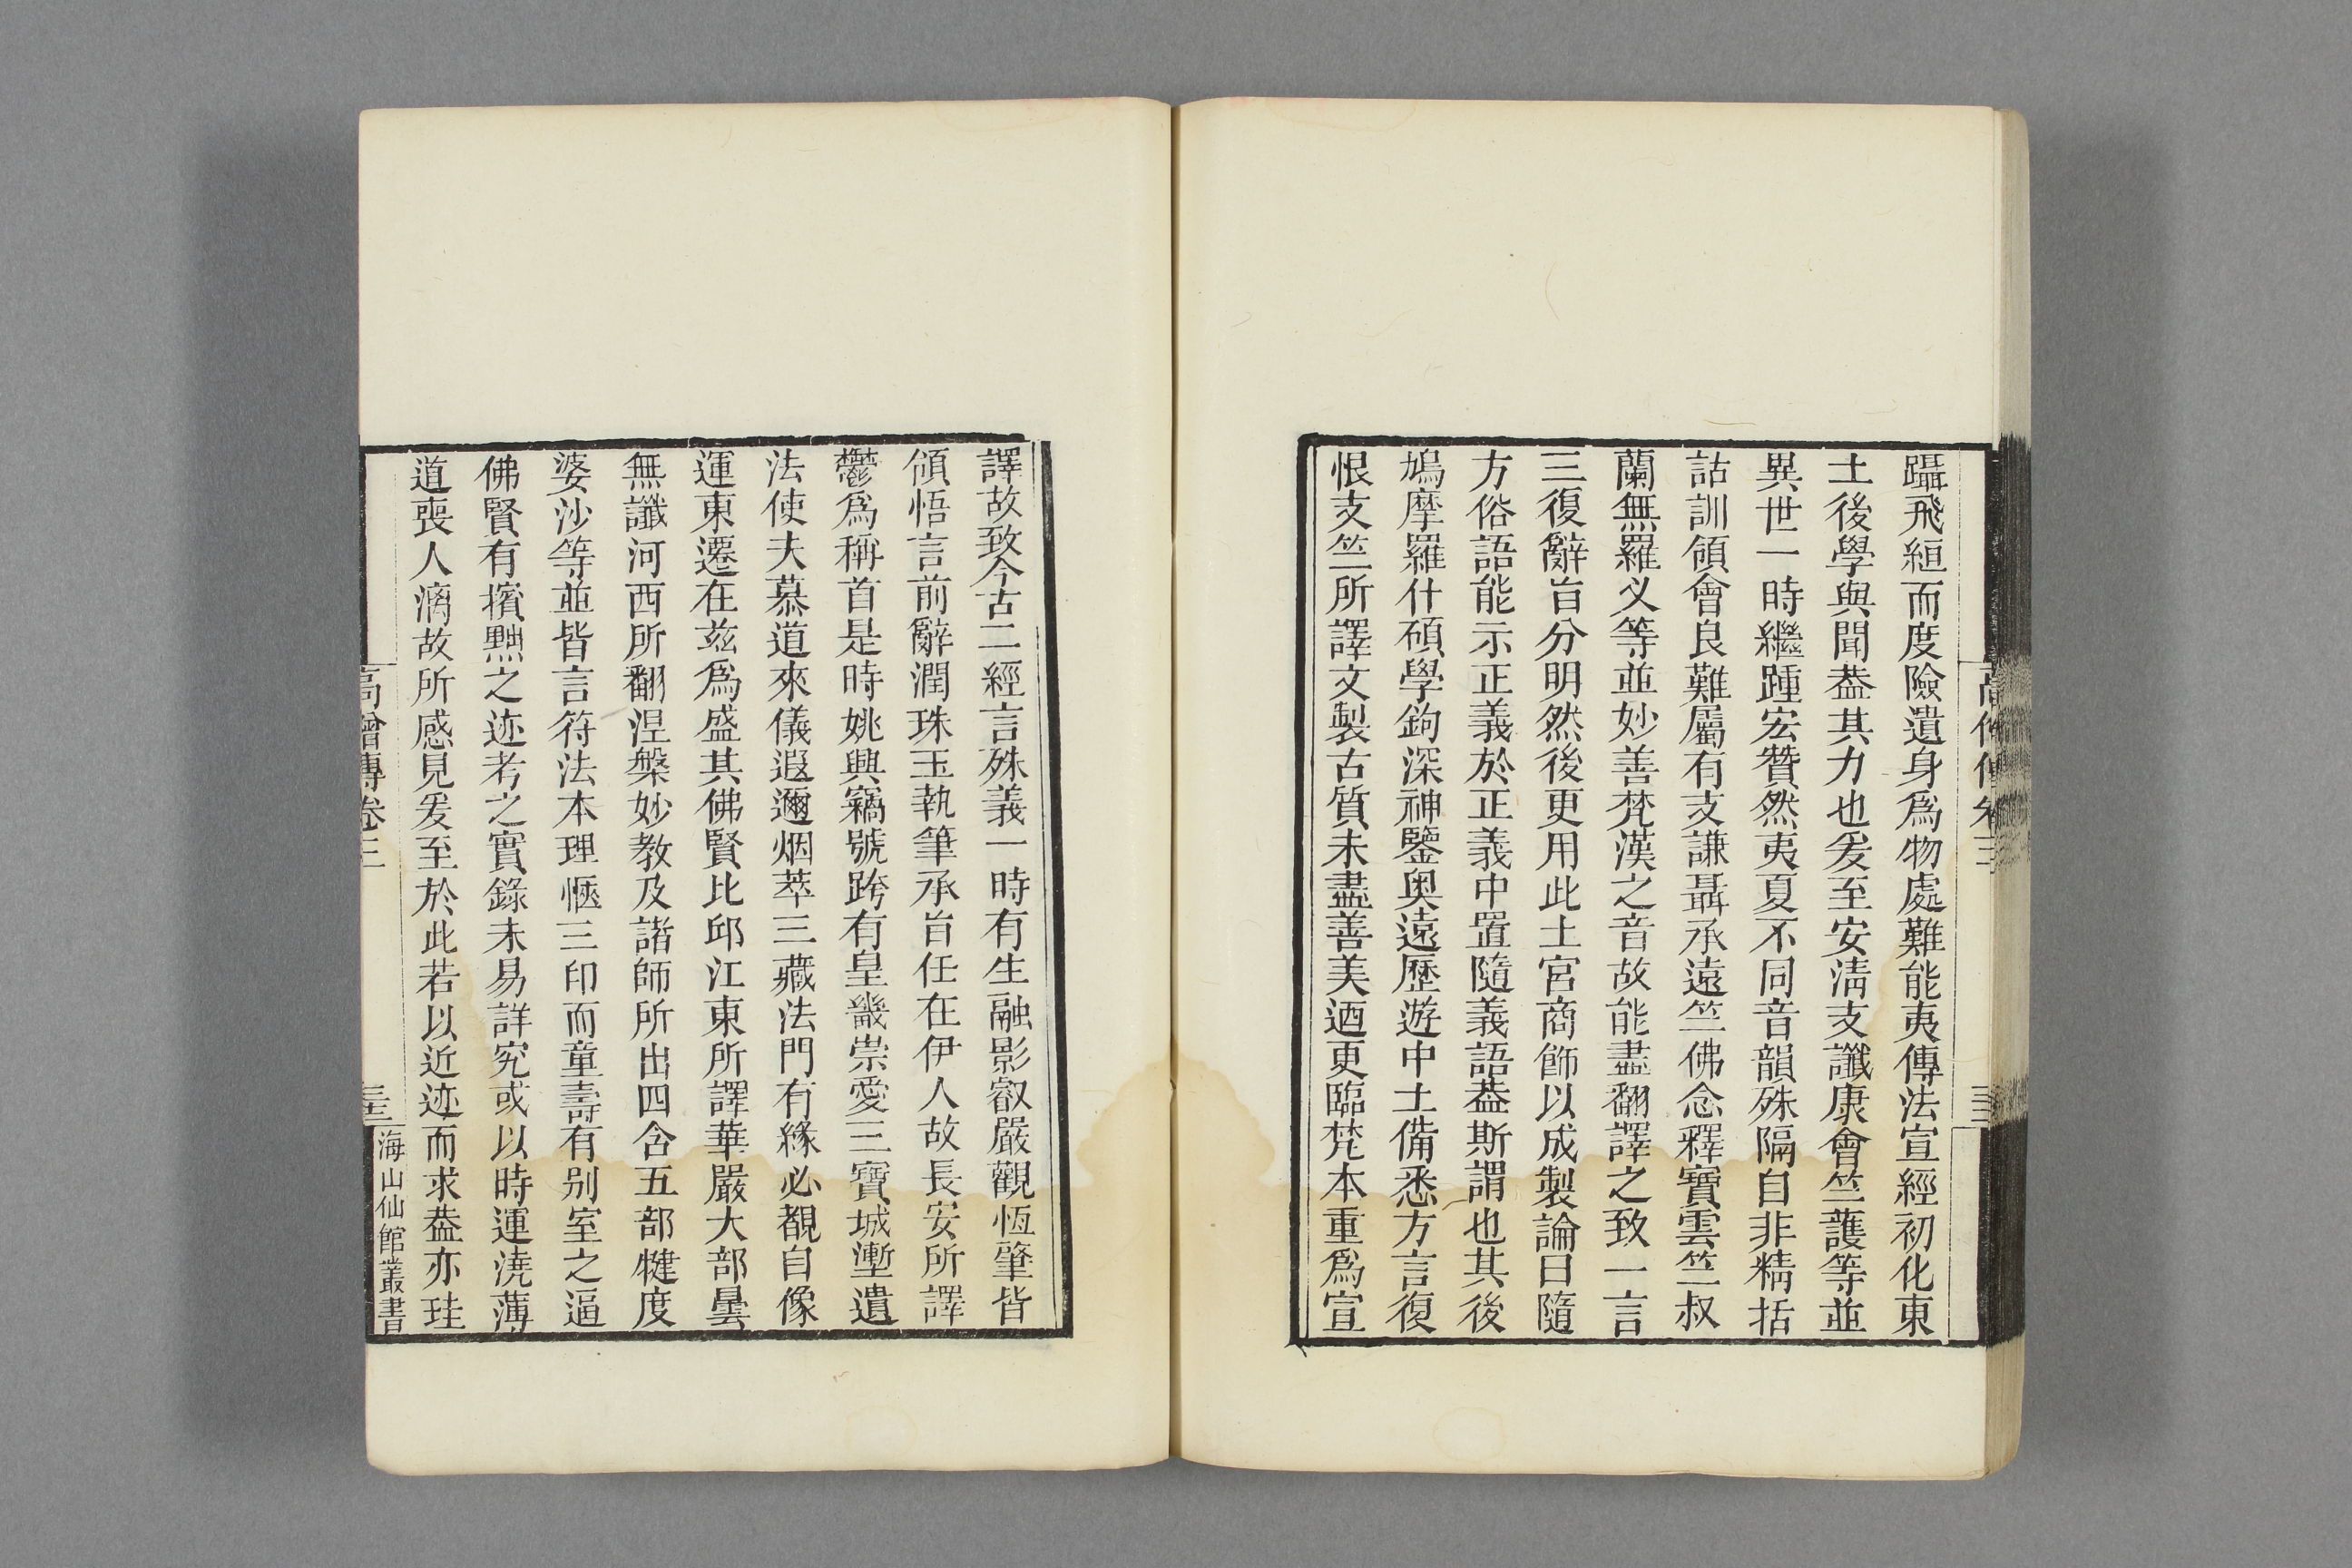 躡飛絙而度險遺身爲物處難能夷傳法宣經初化東
土後學與聞葢其力也爰至安淸支讖康會竺護等並
異世一時繼踵宏贊然夷夏不同音韻殊隔自非精括
詁訓領會良難屬有支謙聶承遠竺佛念釋寶雲竺叔
蘭無羅义等並妙善梵漢之音故能盡翻譯之致一言
三復辭旨分明然後更用此土宮商飾以成製論曰隨
方俗語能示正義於正義中置隨義語葢斯謂也其後
鳩摩羅什碩學鉤深神鑒奥遠歷遊中土備悉方言復
恨支竺所譯文製古質未盡善美迺更臨梵本重爲宣
譯故致今古二經言殊義一時有生融影叡嚴觀恆肇皆
領悟言前辭潤珠玉執筆承旨任在伊人故長安所譯
鬱爲稱首是時姚興竊號跨有皇畿崇愛三寶城塹遺
法使夫慕道來儀遐邇烟萃三藏法門有緣必覩自像
運東遷在茲爲盛其佛賢比邱江東所譯華嚴大部曇
無讖河西所翻涅槃妙教及諸師所出四含五部犍度
婆沙等並皆言符法本理愜三印而童壽有别室之逼
佛賢有擯黜之迹考之實錄未易詳究或以時運澆薄
道喪人漓故所感見爰至於此若以近迹而求葢亦珪
高僧傳卷三
海山仙館叢書